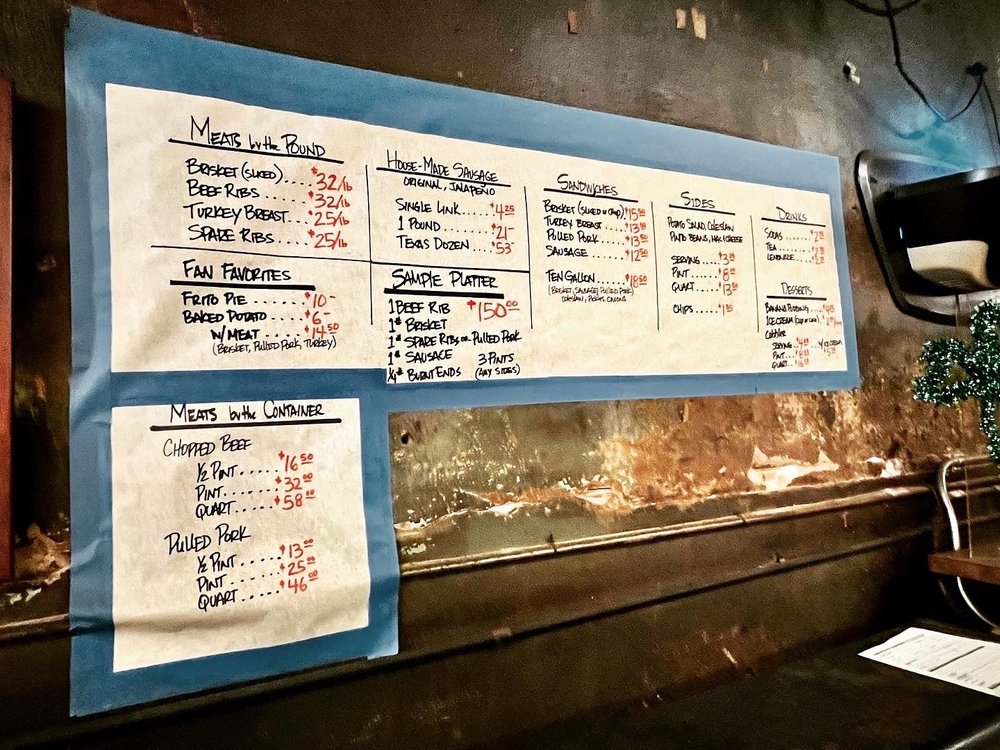 MEATS by the POUND
BRISKET (SLICED).... $32/lb
BEEF RIBS....... $32/lb
TURKEY BREAST... $25/lb
SPARE RIBS.... $25/lb
FAN FAVORITES
FRITO PIE ....... $10-
BAKED POTATO ..... $6-
W/ MEAT ..... $14.50
(BRISKET, PULLED PORK, TURKEY)
HOUSE-MADE SAUSAGE
ORIGINAL, JALAPEÑO
SINGLE LINK.... $4.25
1 POUND....... $21-
TEXAS DOZEN.... $53-
SAMPLE PLATTER
1 BEEF RIB $150.00
1# BRISKET
1# SPARE RIBS or PULLED PORK
1# SAUSAGE 3 PINTS
¼# BURNT ENDS (ANY SIDES)
SANDWICHES
BRISKET (SLICED or CHOP) $15.50
TURKEY BREAST... $13.50
PULLED PORK.... $13.50
SAUSAGE ..... $12.50
TEN GALLON..... $18.50
(BRISKET, SAUSAGE, PULLED PORK)
COLESLAW, PICKLES, ONIONS
SIDES
POTATO SALAD, COLESLAW
PINTO BEANS, MAC & CHEESE
SERVING ....
PINT .....
QUART ....
CHIPS .....
DRINKS
SODAS ......
TEA ........
LEMONADE....
DESSERTS
BANANA PUDDING....
ICE CREAM (cup or cone)
Cobbler
SERVING... W/ ICE CREAM
PINT ....
QUART ....
MEATS by the CONTAINER
CHOPPED BEEF
½ PINT..... $16.50
PINT....... $32.00
QUART..... $58.00
PULLED PORK
½ PINT..... $13.00
PINT....... $25.00
QUART..... $46.00